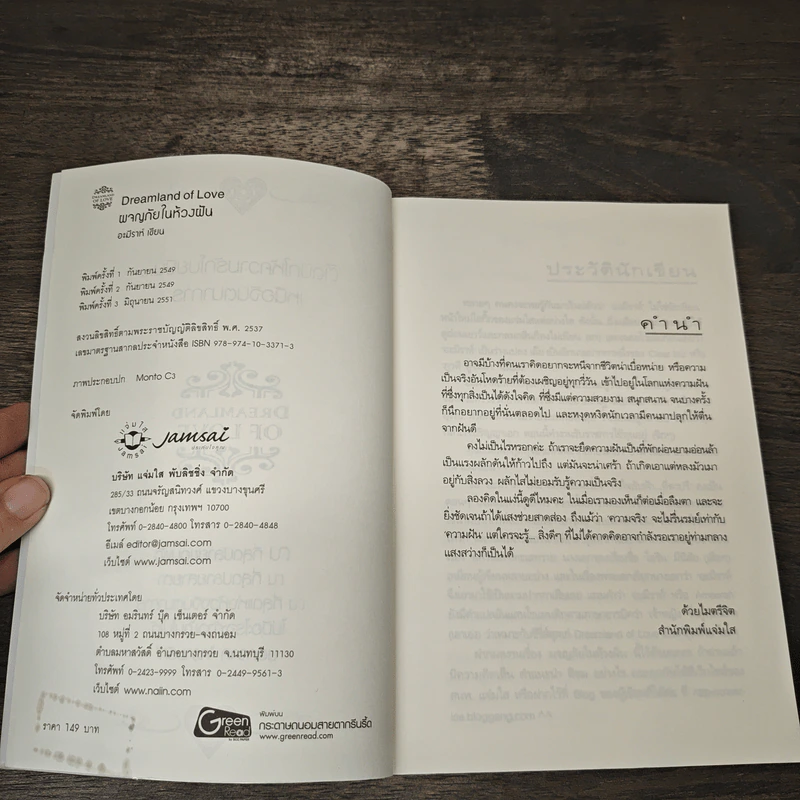 DREAMLAND
OF LOVE
Dreamland of Love
ผจญภัยในห้วงฝัน
อะมีราห์ เขียน
พิมพ์ครั้งที่ 1 กันยายน 2549
พิมพ์ครั้งที่ 2 กันยายน 2549
พิมพ์ครั้งที่ 3 มิถุนายน 2551
สงวนลิขสิทธิ์ตามพระราชบัญญัติลิขสิทธิ์ พ.ศ. 2537
เลขมาตรฐานสากลประจำหนังสือ ISBN 978-974-10-3371-3
ภาพประกอบปก Monto C3
จัดพิมพ์โดย
แจ่มใส
Jamsai
Jamsai
บริษัท แจ่มใส พับลิชชิ่ง จำกัด
285/33 ถนนจรัญสนิทวงศ์ แขวงบางขุนศรี
เขตบางกอกน้อย กรุงเทพฯ 10700
โทรศัพท์ 0-2840-4800 โทรสาร 0-2840-4848
อีเมล์ editor@jamsai.com
เว็บไซต์ www.jamsai.com
จัดจำหน่ายทั่วประเทศโดย
บริษัท อมรินทร์ บุ๊ค เซ็นเตอร์ จำกัด
108 หมู่ที่ 2 ถนนบางกรวย-จงถนอม
ตำบลมหาสวัสดิ์ อำเภอบางกรวย จ.นนทบุรี 11130
โทรศัพท์ 0-2423-9999 โทรสาร 0-2449-9561-3
เว็บไซต์ www.naiin.com
ราคา 149 บาท
Green
Read
พิมพ์บน
กระดาษถนอมสายตากรีนรี้ด
www.greenread.com
คำนำ
อาจมีบ้างที่คนเราคิดอยากจะหนีจากชีวิตน่าเบื่อหน่าย หรือความ
เป็นจริงอันโหดร้ายที่ต้องเผชิญอยู่ทุกวี่วัน เข้าไปอยู่ในโลกแห่งความฝัน
ที่ซึ่งทุกสิ่งเป็นได้ดังใจคิด ที่ซึ่งมีแต่ความสวยงาม สนุกสนาน จนบางครั้ง
ก็นึกอยากอยู่ที่นั่นตลอดไป และหงุดหงิดนักเวลามีคนมาปลุกให้ตื่น
จากฝันดี
คงไม่เป็นไรหรอกค่ะ ถ้าเราจะยึดความฝันเป็นที่พักผ่อนยามอ่อนล้า
เป็นแรงผลักดันให้ก้าวไปถึง แต่มันจะน่าเศร้า ถ้าเกิดเอาแต่หลงมัวเมา
อยู่กับสิ่งลวง ผลักไสไม่ยอมรับรู้ความเป็นจริง
ลองคิดในแง่นี้ดูดีไหมคะ ในเมื่อเรามองเห็นก็ต่อเมื่อลืมตา และจะ
ยิ่งชัดเจนถ้าได้แสงช่วยสาดส่อง ถึงแม้ว่า 'ความจริง' จะไม่รื่นรมย์เท่ากับ
'ความฝัน' แต่ใครจะรู้... สิ่งดีๆ ที่ไม่ได้คาดคิดอาจกำลังรอเราอยู่ท่ามกลาง
แสงสว่างก็เป็นได้
ด้วยไมตรีจิต
สำนักพิมพ์แจ่มใส